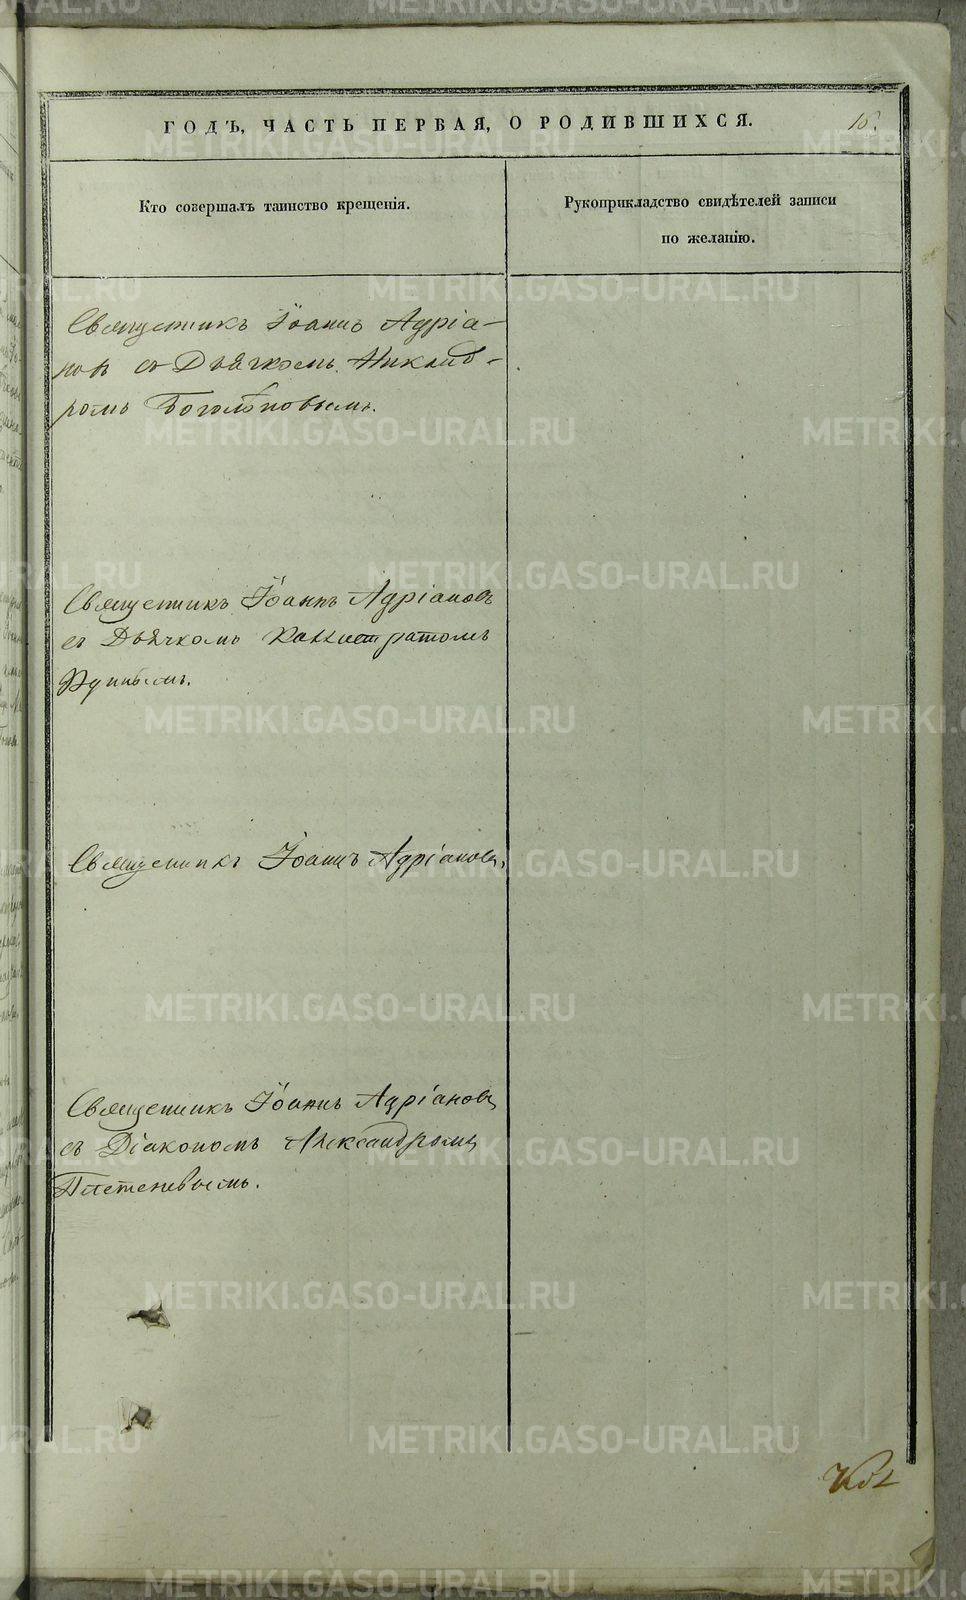 ГОДЪ, ЧАСТЬ ПЕРВАЯ, О РОДИВШИХСЯ.
16.
Кто совершалъ таинство крещенія.
Рукоприкладство свидѣтелей записи
по желанію.
Священникъ Іоаннъ Адріа-
новъ съ Дьячкомъ Никанд-
ромъ Боголѣповымъ.
Священникъ Іоаннъ Адріановъ
съ Дьячкомъ Каллистратомъ
Священникъ Іоаннъ Адріановъ,
Священникъ Іоаннъ Адріановъ
съ Діакономъ Александромъ
Плетеневымъ.
METRIKI.GASO-URAL.RU